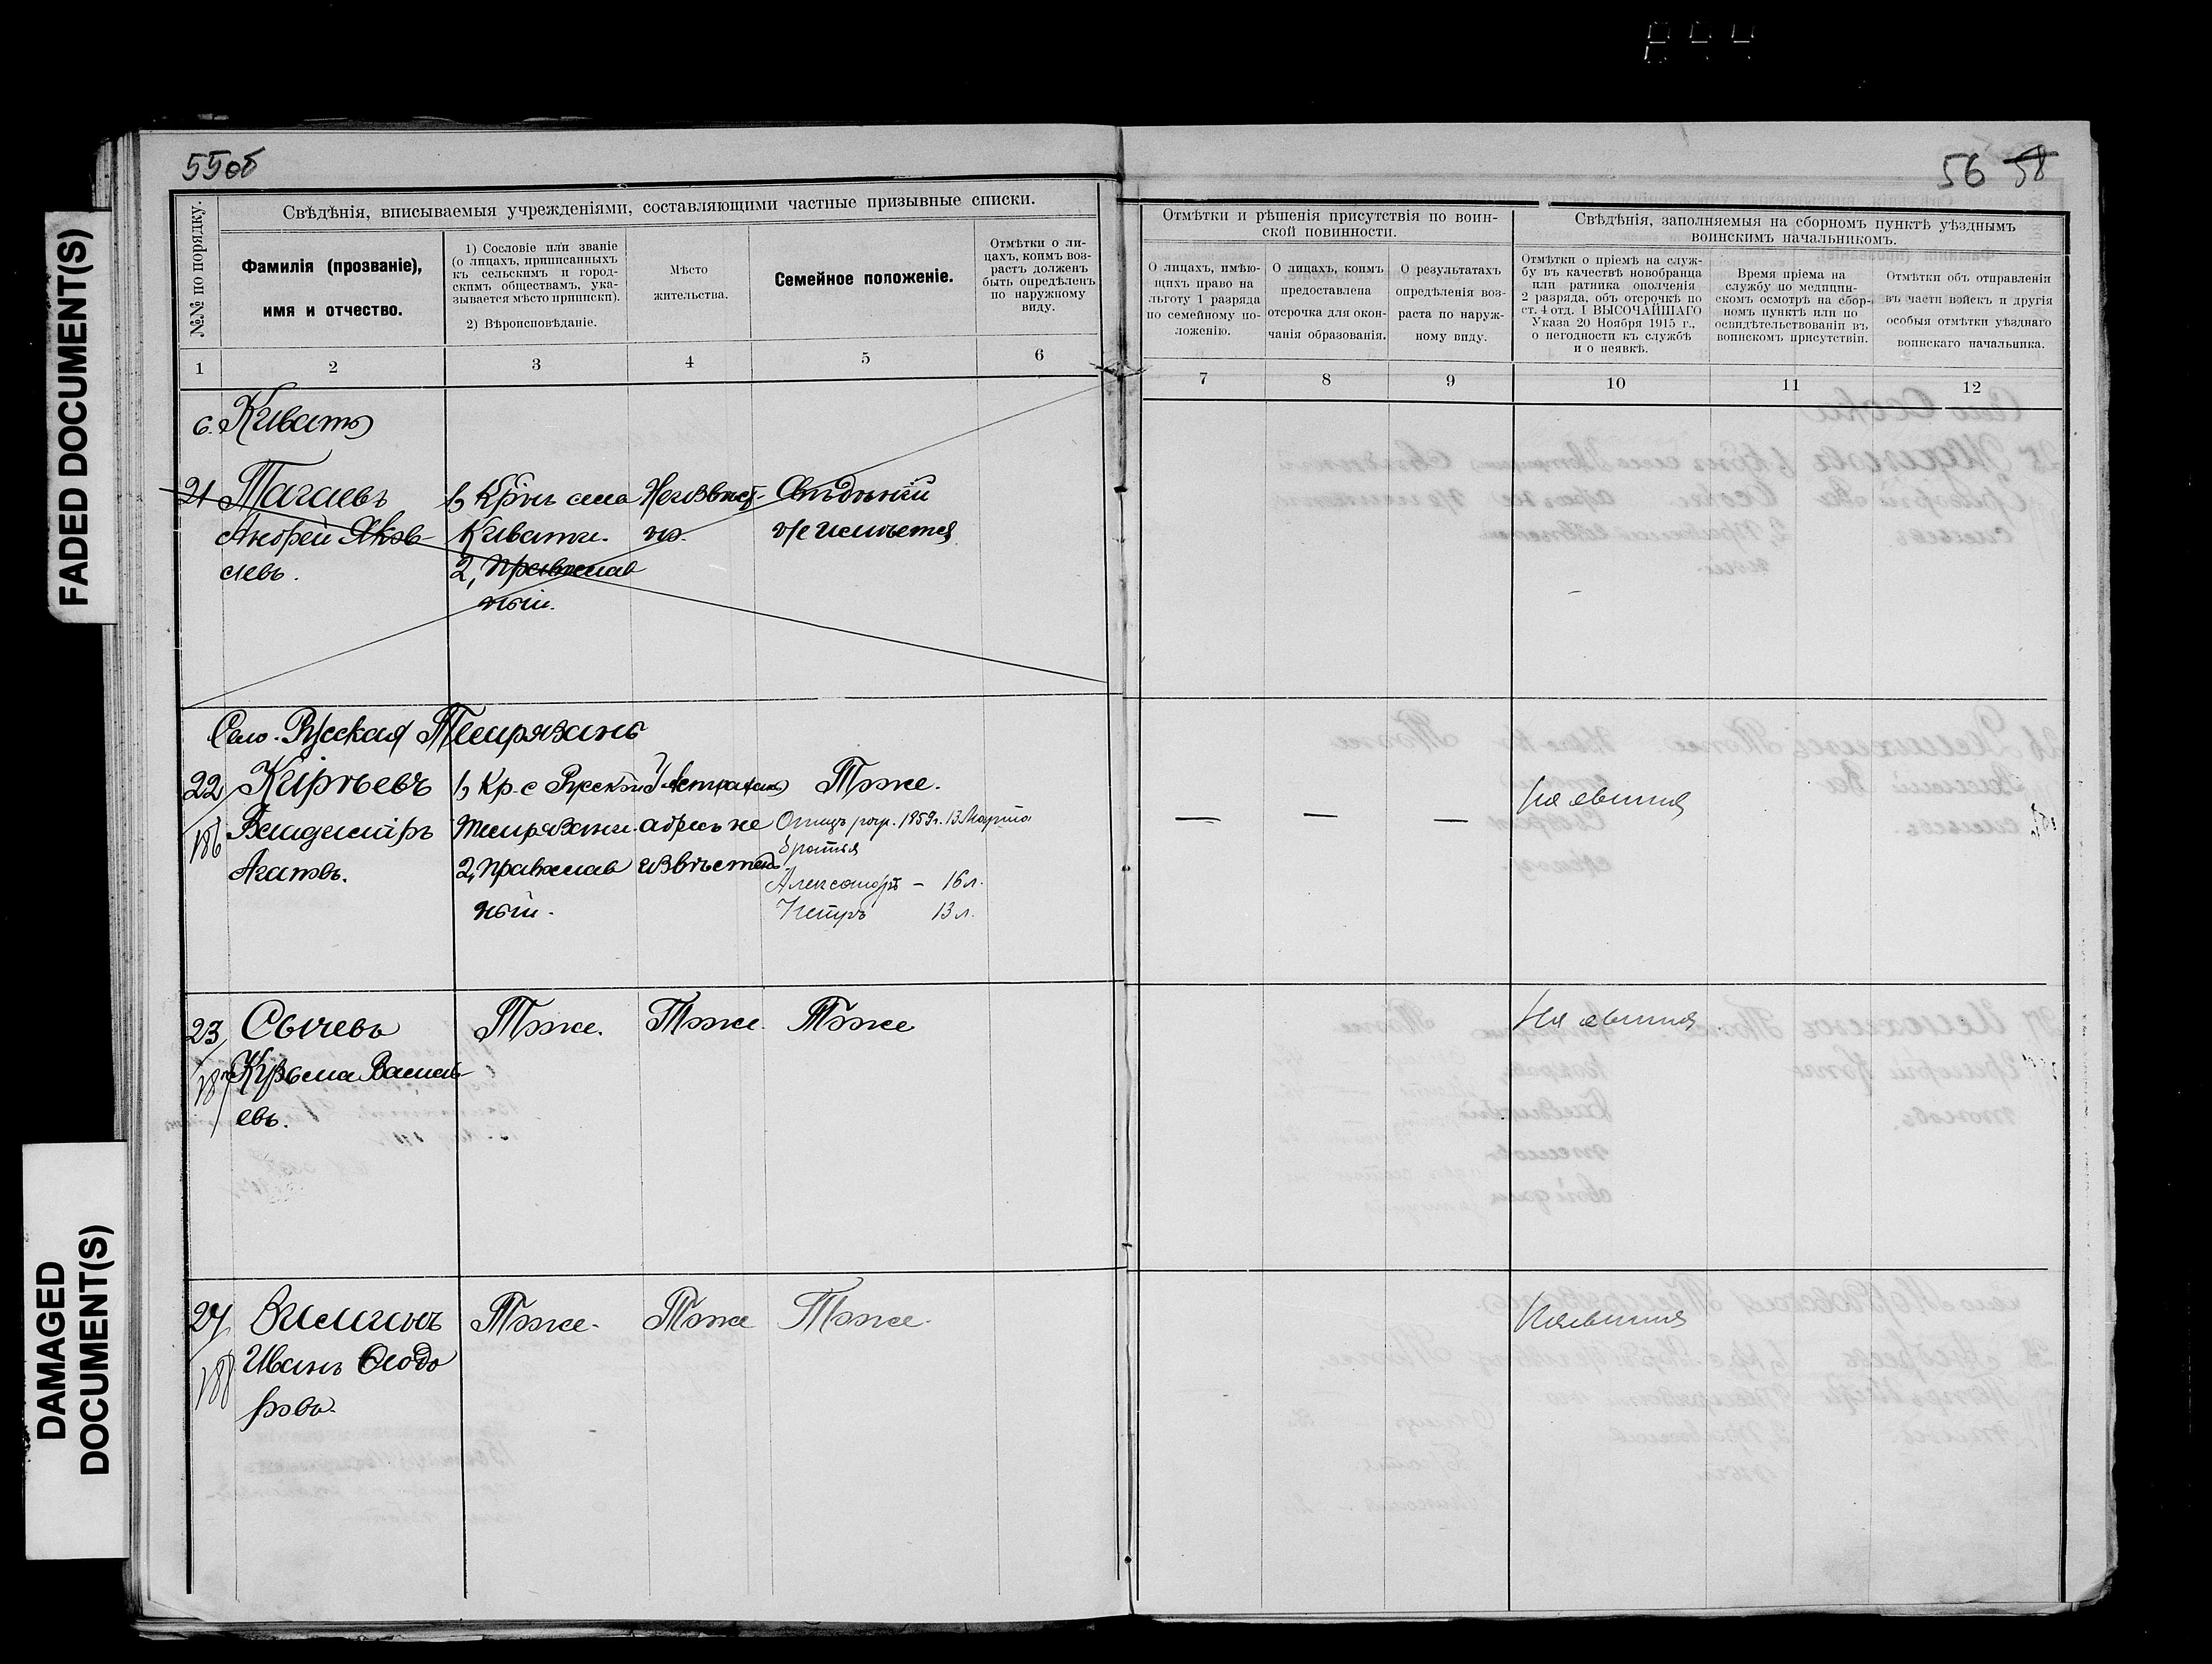 FADED DOCUMENT(S)
DAMAGED
DOCUMENT(S)
55об
56 58
Свѣдѣнія, вписываемыя учрежденіями, составляющими частные призывные списки.
№№ по порядку.
Фамилія (прозваніе),
имя и отчество.
1) Сословіе или званіе
(о лицахъ, приписанныхъ
къ сельскимъ и город-
скимъ обществамъ, ука-
зывается мѣсто приписки).
2) Вѣроисповѣданіе.
Мѣсто
жительства.
Семейное положеніе.
Отмѣтки о ли-
цахъ, коимъ воз-
растъ долженъ
быть опредѣленъ
по наружному
виду.
1 2 3 4 5 6
Отмѣтки и рѣшенія присутствія по воин-
ской повинности.
О лицахъ, имѣю-
щихъ право на
льготу 1 разряда
по семейному по-
ложенію.
О лицахъ, коимъ
предоставлена
отсрочка для окон-
чанія образованія.
О результатахъ
опредѣленія воз-
раста по наруж-
ному виду.
Свѣдѣнія, заполняемыя на сборномъ пунктѣ уѣзднымъ
воинскимъ начальникомъ.
Отмѣтки о пріемѣ на служ-
бу въ качествѣ новобранца
или ратника ополченія
2 разряда, объ отсрочкѣ по
ст. 4 отд. I ВЫСОЧАЙШАГО
Указа 20 Ноября 1915 г.,
о негодности къ службѣ
и о неявкѣ.
Время пріема на
службу по медицин-
скомъ осмотрѣ на сбор-
номъ пунктѣ или по
освидѣтельствованіи въ
воинскомъ присутствіи.
Отмѣтки объ отправленіи
въ части войскъ и другія
особыя отмѣтки уѣзднаго
воинскаго начальника.
7 8 9 10 11 12
с. Кивать
21 Тагаевъ
Андрей Яков-
левъ.
1, Кр-нъ села
Кивати.
2, Православ
ный.
Неизвѣст-
но.
Свѣдѣній
не имѣется
Село Русская Темрязань
22/186
Владиміръ
Агаповъ.
1, Кр. с Русской
Темрязани.
2, Православ
ный.
Астрахань
адресъ не
извѣстенъ
Тоже.
Отецъ род. 1859г. 13 Марта
братья
Александръ – 16 л.
Петръ 13 л.
— — —
Не явился
23/187 Сычевъ
Кузьма Василь-
евъ.
Тоже. Тоже. Тоже
Не явился
24/188
Иванъ Ѳедо
ровъ.
Тоже. Тоже Тоже.
Неявился